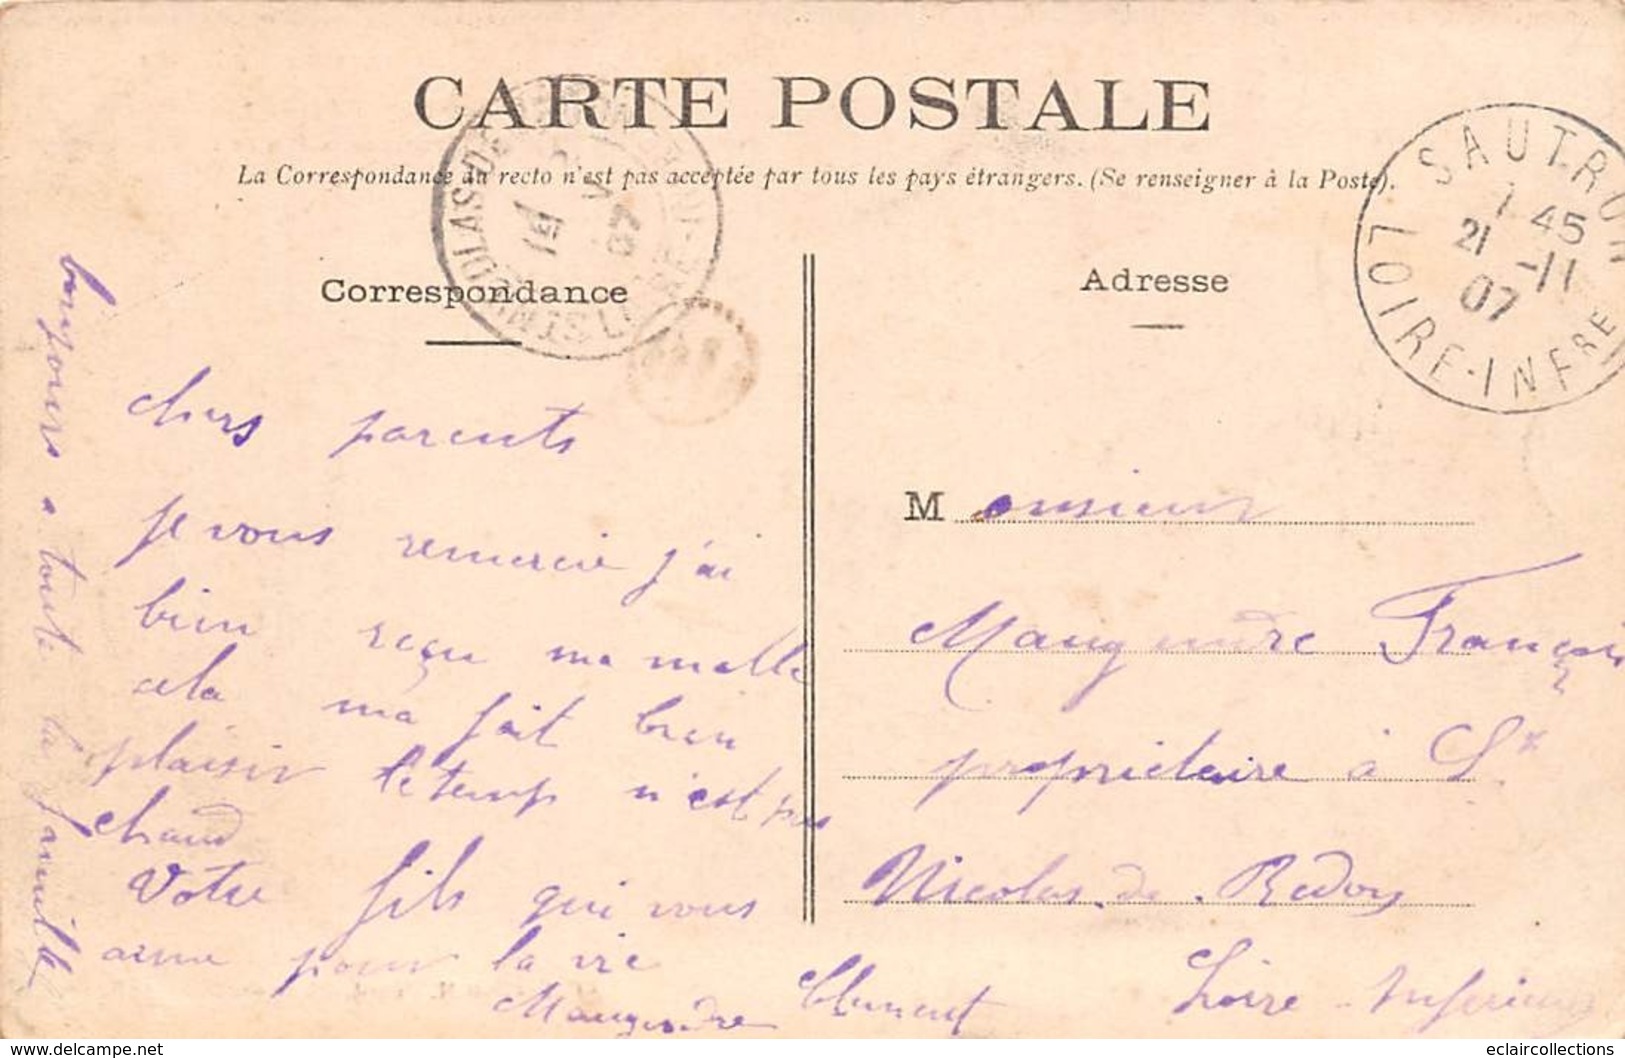 CARTE POSTALE
La Correspondance au recto n'est pas acceptée par tous les pays étrangers. (Se renseigner à la Poste).
Correspondance
Adresse
SAUTRON
7 45
21 -11
07
LOIRE-INFRE
chers parents
je vous remercie j'ai
bien reçu ma malle
cela ma fait bien
plaisir le temp n'est pas
chaud
Votre fils qui vous
aime pour la vie
Maugendre Clement
bonjours a toute la famille
Monsieur
Maugendre François
propriétaire à St
Nicolas-de-Redon
Loire-Inferieure
eclaircollections
delcampe.net